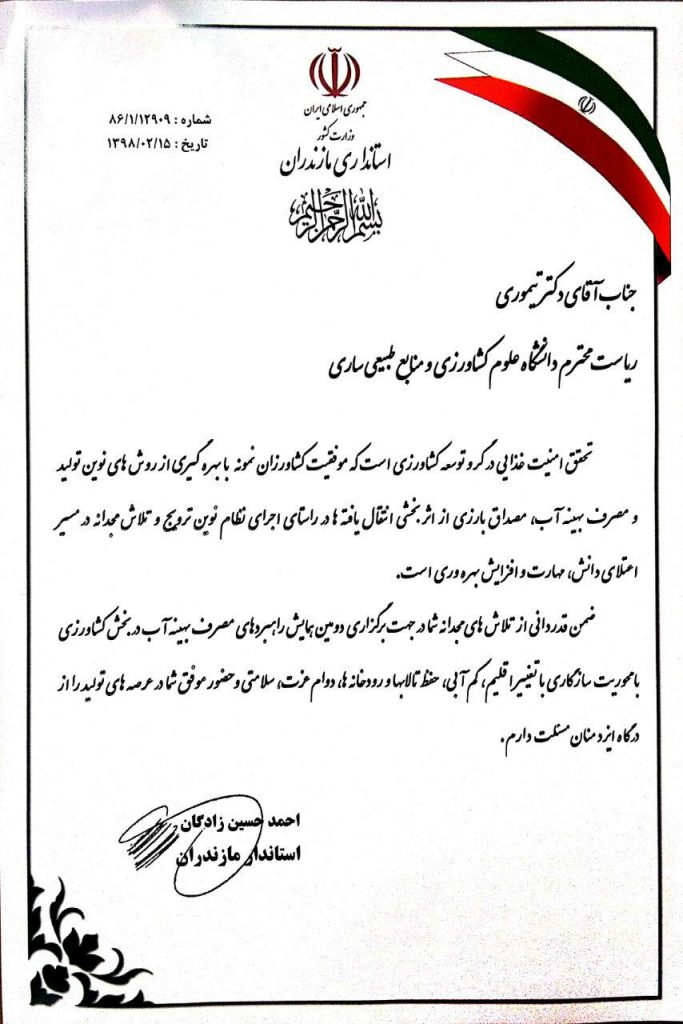 جمهوری اسلامی ایران
وزارت کشور
استانداری مازندران
شماره : ۸۶/۱/۱۲۹۰۹
تاریخ : ۱۳۹۸/۰۲/۱۵
بسم الله الرحمن الرحیم
جناب آقای دکتر تیموری
ریاست محترم دانشگاه علوم کشاورزی و منابع طبیعی ساری
تحقق امنیت غذایی در گرو توسعه کشاورزی است که موفقیت کشاورزان نمونه با بهره گیری از روش های نوین تولید
و مصرف بهینه آب، مصداق بارزی از اثر بخشی انتقال یافته ها در راستای اجرای نظام نوین ترویج و تلاش مجدانه در مسیر
اعتلای دانش، مهارت و افزایش بهره وری است.
ضمن قدردانی از تلاش های مجدانه شما در جهت برگزاری دومین همایش راهبردهای مصرف بهینه آب در بخش کشاورزی
با محوریت سازگاری با تغییر اقلیم، کم آبی، حفظ تالابها و رودخانه ها، دوام عزت، سلامتی و حضور موفق شما در عرصه های تولید را از
درگاه ایزد منان مسئلت دارم.
احمد حسین زادگان
استاندار مازندران